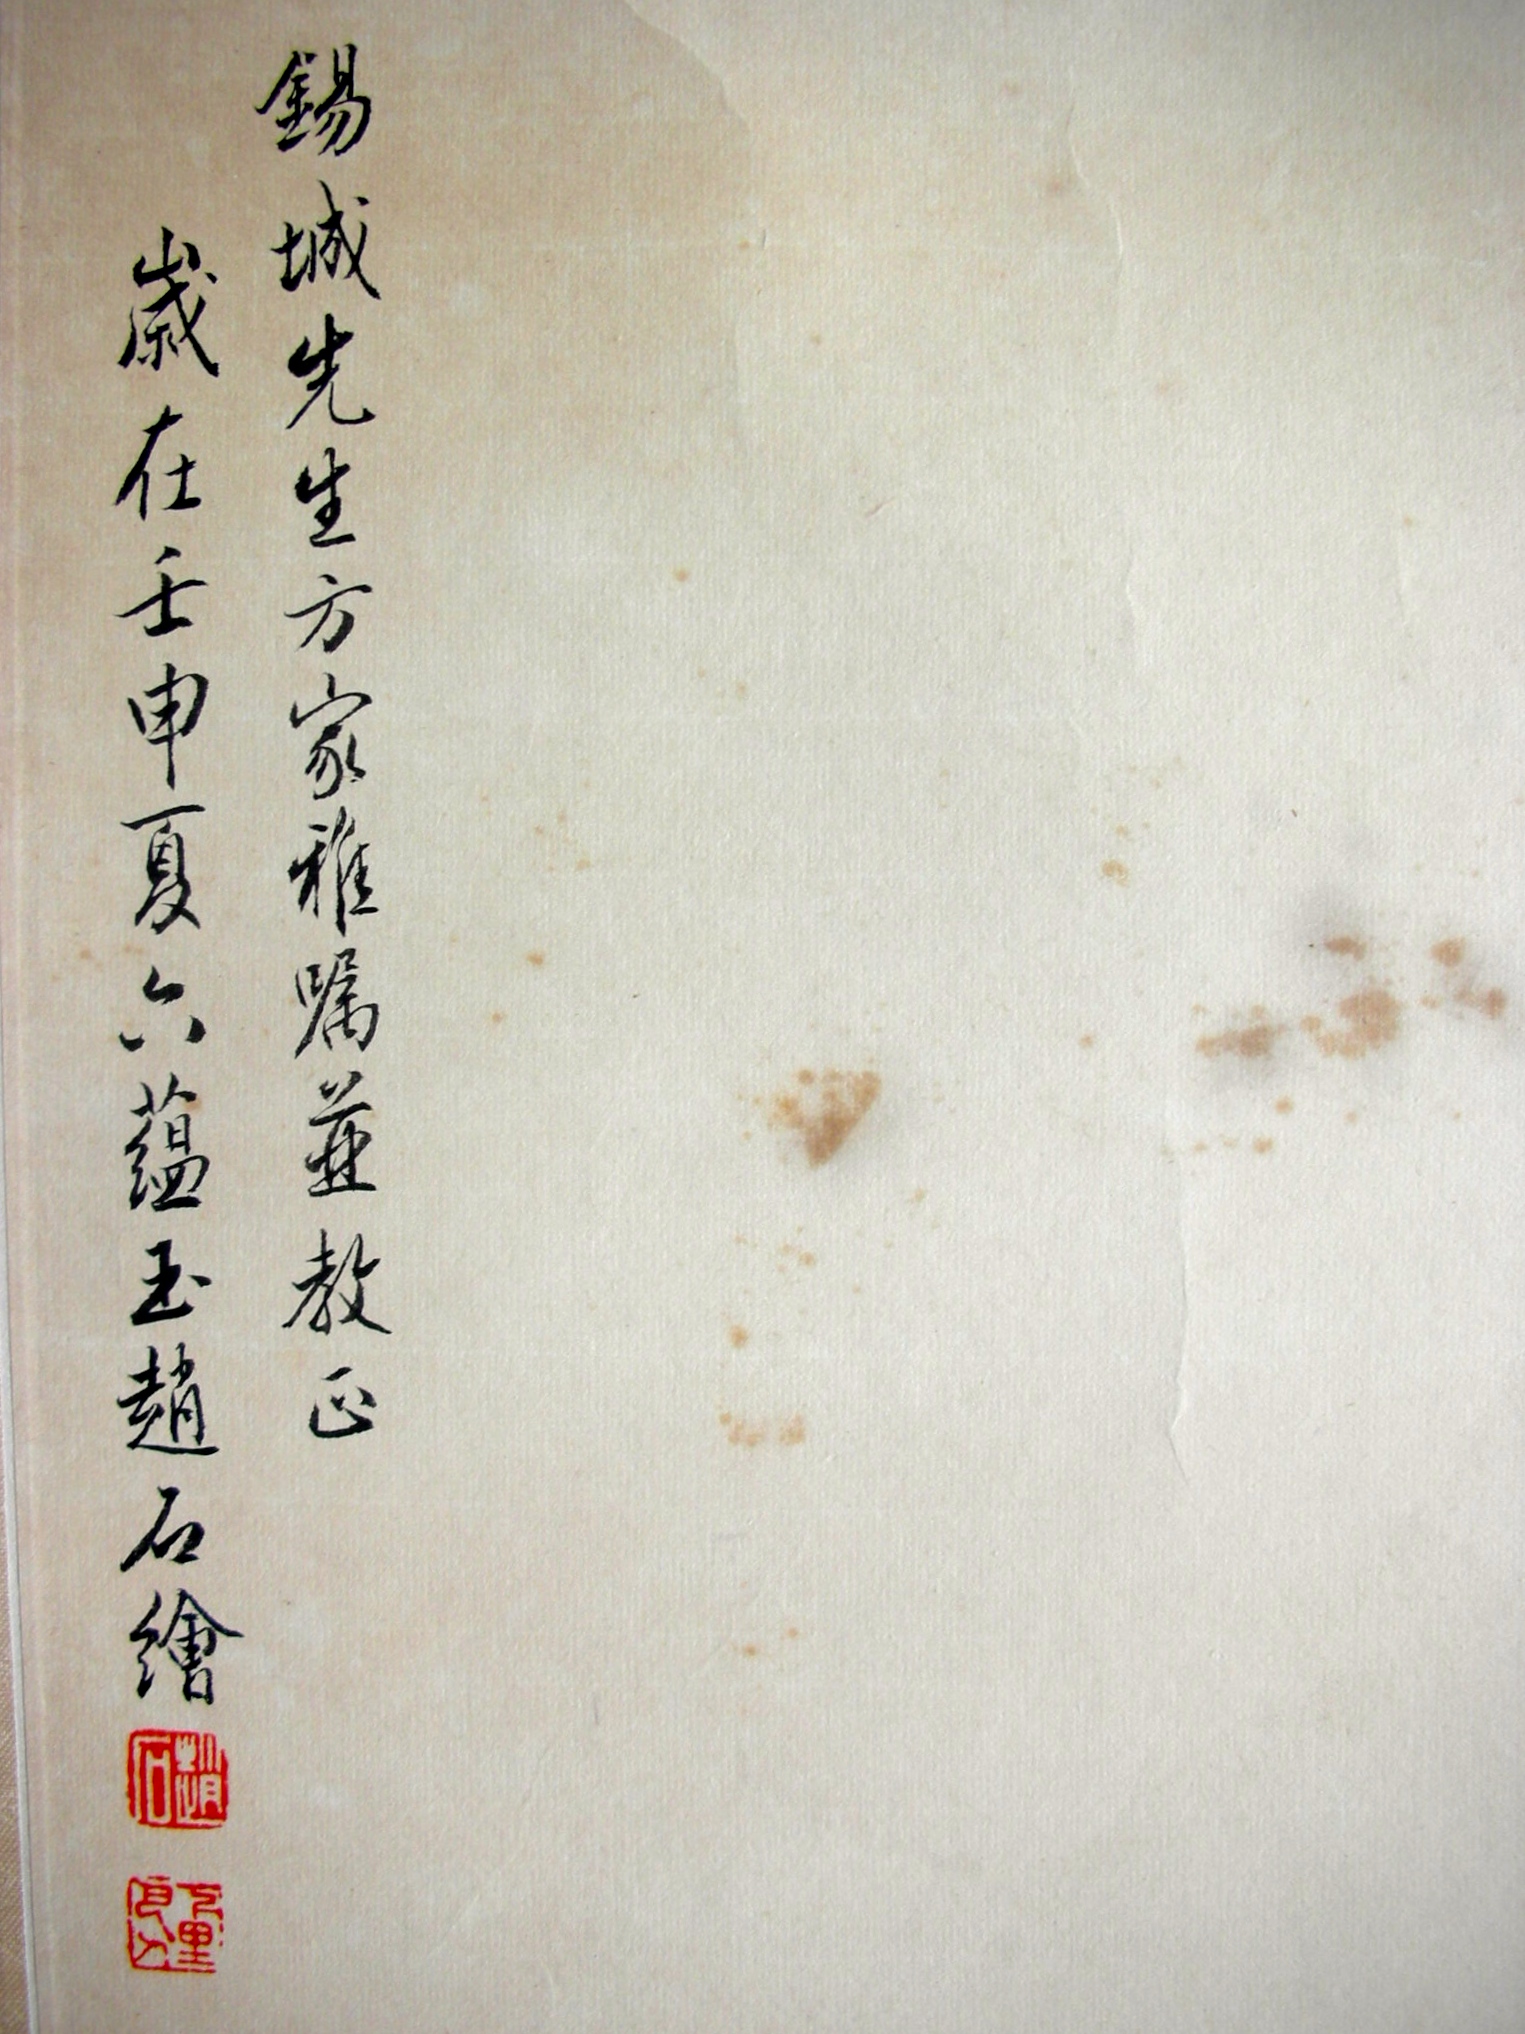 錫城先生方家雅嘱並教正
歲在壬申夏六蕴玉趙石繪
趙石